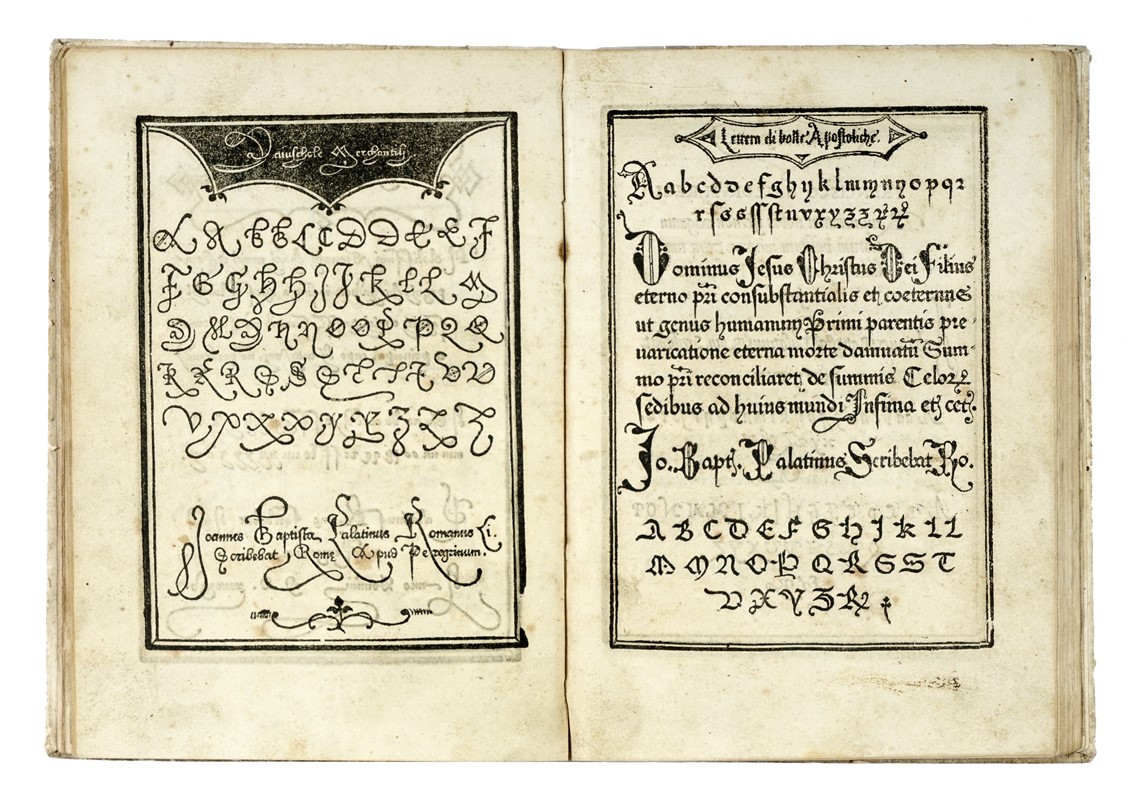 Maiuschole Merchantili
A A B B L C C D D E E F
F G G H H I J K L L M
D M D H N O O P P Q Q
R R R S S S T T T V V
V P X X X Y R Z Z Z
Joannes Baptista Palatinus Romanus Ci.
Scribebat Rome Apud Peregrinum.
Lettera di bolle Apostoliche.
A a b c d d e f g h y k l m m n n o p q r
r s s s ss st u v x y z z
Dominus Jesus Christus Dei Filius
eterno pri consubstantialis et coeternus
ut genus humanum Primi parentis pre
uaricatione eterna morte damnatu Sum-
mo pri reconciliaret de summis Celor
sedibus ad huius mundi Infima et cet.
Jo. Bapt. Palatinus Scribebat Ro.
A B C D E F G H J K L L
M M N O P Q R S S T
V X Y Z R